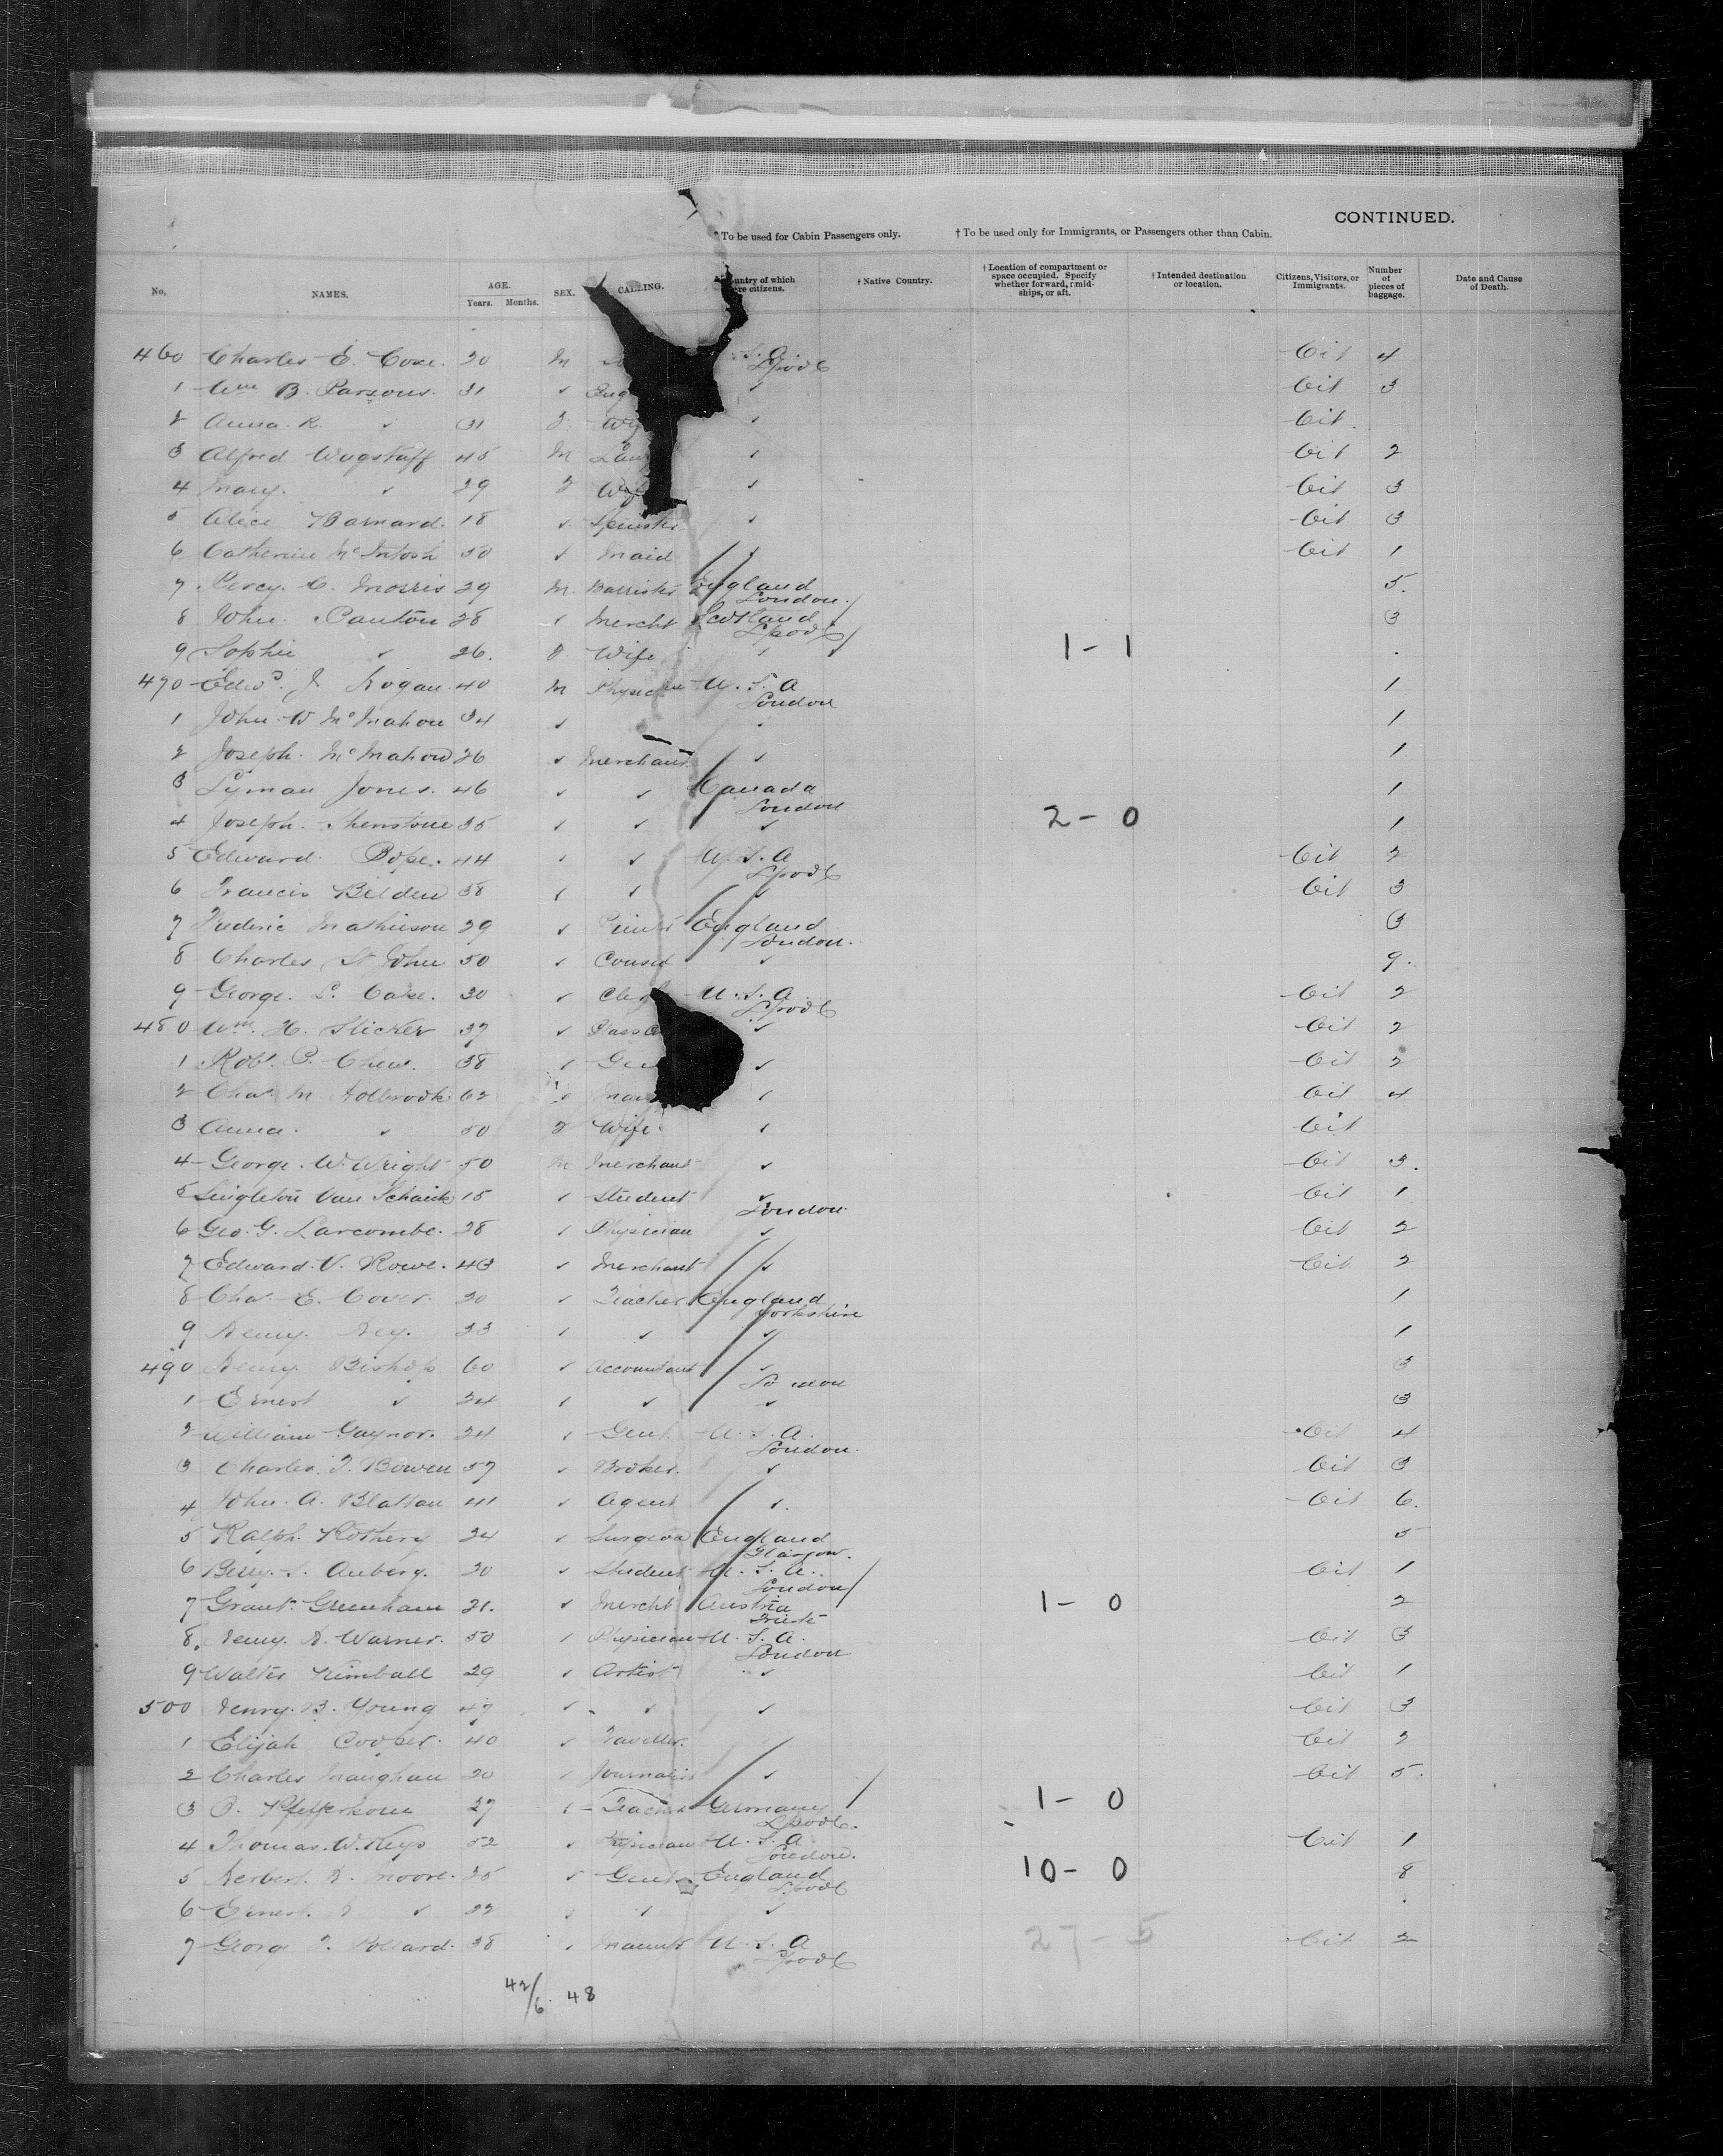 CONTINUED.
* To be used for Cabin Passengers only. † To be used only for Immigrants, or Passengers other than Cabin.
No. NAMES. AGE. Years. Months. SEX. CALLING. Country of which were citizens. † Native Country. † Location of compartment or space occupied. Specify whether forward, amidships, or aft. † Intended destination or location. Citizens, Visitors, or Immigrants. Number of pieces of baggage. Date and Cause of Death.
460 Charles E. Coxe. 30 M S. A. Lpool Cit 4
1 Wm B. Parsons. 31 ✓ Eng ✓ Cit 3
2 Anna R. ✓ 31 F. ✓ Cit
3 Alfred Wagstaff 45 M Law ✓ Cit 2
4 Mary. ✓ 39 F Wif ✓ Cit 3
5 Alice Barnard. 18 ✓ Spinster ✓ Cit 3
6 Catherine McIntosh 30 ✓ Maid ✓ Cit 1
7 Percy. C. Morris 29 M. Barrister England London. 5.
8 John. Panton 28 ✓ Mercht Scotland Lpool 3
9 Sophie ✓ 26. F. Wife ✓ ✓ 1 - 1
470 Edwd. J. Hogan. 40 M Physician U. S. A London 1
1 John W McMahon 34 ✓ ✓ 1
2 Joseph. McMahon 26 ✓ Merchant ✓ 1
3 Lyman Jones. 46 ✓ ✓ Canada London 1
4 Joseph. Shenstone 35 ✓ ✓ ✓ 2 - 0 1
5 Edward Pope. 44 ✓ ✓ U. S. A Lpool Cit 2
6 Francis Belden 38 ✓ ✓ ✓ Cit 3
7 Frederic Mathieson 29 ✓ England London. 3
8 Charles St John 50 ✓ Consul ✓ 9.
9 George. L. Case. 30 ✓ U. S. A. Lpool Cit 2
480 Wm. H. Slicker 37 ✓ Glass ✓ Cit 2
1 Robt. P. Chew. 38 ✓ ✓ Cit 2
2 Chas. M Holbrook 62 ✓ ✓ Cit 4
3 Anna. ✓ 50 F Wife ✓ Cit
4 George. W. Wright 50 M Merchant ✓ Cit 3.
5 Singleton Van Schaick 15 ✓ Student ✓ London. Cit 1
6 Geo. G. Larcombe. 28 ✓ Physician ✓ Cit 2
7 Edward. V. Rowe. 43 ✓ Merchant ✓ Cit 2
8 Chas. E. Cover. 30 ✓ Teacher England Yorkshire 1
9 Henry. Hey. 33 ✓ ✓ ✓ 1
490 Henry Bishop 60 ✓ Accountant ✓ London 3
1 Ernest ✓ 24 ✓ ✓ ✓ 3
2 William Gaynor. 24 ✓ Gent U. S. A. London. Cit 4
3 Charles. T. Bowen 37 ✓ Broker. ✓ Cit 3
4 John. A. Blattau 41 ✓ Agent ✓. Cit 6.
5 Ralph. Rothery 24 ✓ Surgeon England Glasgow. 5
6 30 ✓ Student U. S. A. London Cit 1
7 Grant. Greenham 21. ✓ Mercht Austria Trieste 1 - 0 2
8. Henry. H. Warner. 50 ✓ Physician U. S. A. London Cit 3
9 Walter Kimball 29 ✓ Artist ✓ Cit 1
500 Henry. B. Young 47 ✓ ✓ ✓ Cit 3
1 Elijah Cooper. 40 ✓ Traveller. Cit 2
2 Charles Maughan 30 ✓ Journalist ✓ Cit 5.
3 P. Pfefferkorn 27 ✓ Teacher Germany Lpool. 1 - 0
4 Thomas. W. Keys 52 ✓ Physician U. S. A. London. Cit 1
5 Herbert. H. Moore. 25 ✓ Gent England Lpool 10 - 0 8
6 Ernest. ✓ 22 ✓ ✓ ✓
7 George T. Pollard. 38 ✓ U. S. A Lpool 27 - 5 Cit 2
42/6. 48